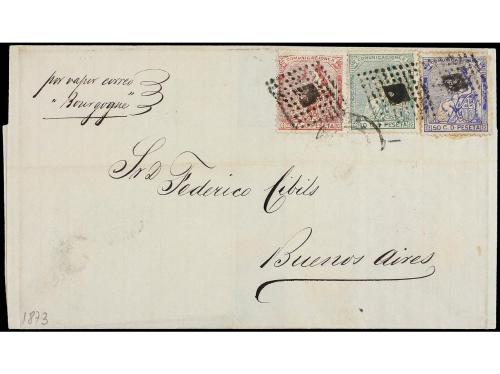 COMUNICACIONES
COMUNICACIONES
COMUNICACIONES
por vapor correo
"Bourgogne"
PESETA
50 C. D PESETA
Sr. D. Federico Cibils
Buenos Aires
1873